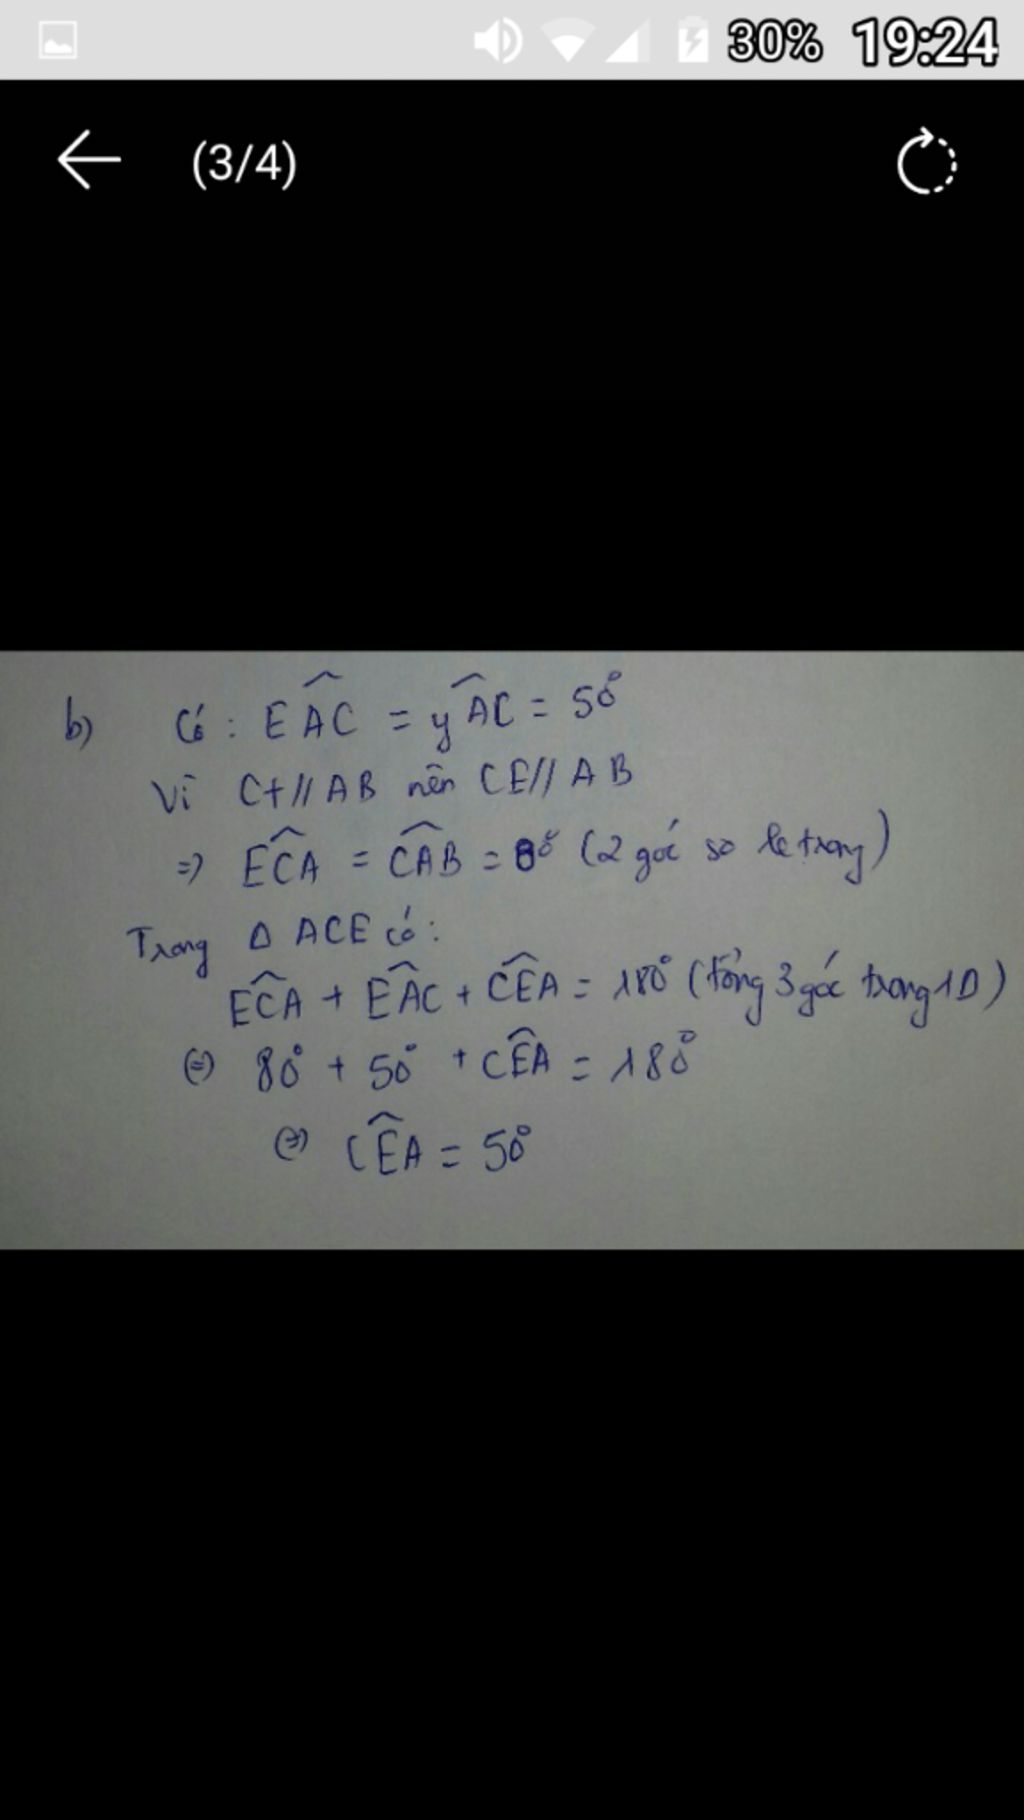 30% 19:24
(3/4)
b) Có : EÂC = yÂC = 50°
Vì Ct // AB nên CE // AB
=) EĈA = CÂB = 80° (2 góc so le trong)
Trong Δ ACE có :
EĈA + EÂC + CÊA = 180° (tổng 3 góc trong 1 Δ)
(=) 80° + 50° + CÊA = 180°
(=) CÊA = 50°